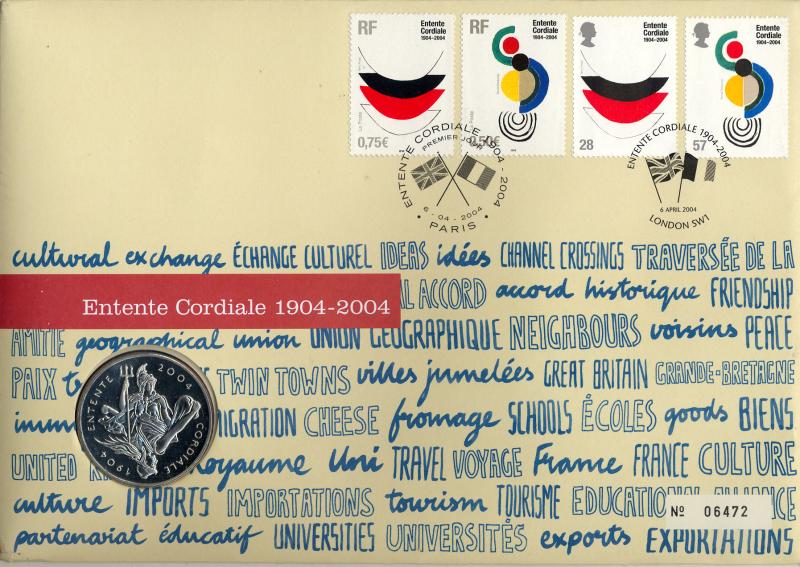 RF
Entente
Cordiale
1904-2004
La Poste
0,75€
RF
Entente
Cordiale
1904-2004
La Poste
0,50€
Entente
Cordiale
1904-2004
28
Entente
Cordiale
1904-2004
57
ENTENTE CORDIALE 1904-2004
PREMIER JOUR
6-04-2004
• PARIS •
ENTENTE CORDIALE 1904-2004
6 APRIL 2004
LONDON SW1
cultural exchange ÉCHANGE CULTUREL IDEAS idées CHANNEL CROSSINGS TRAVERSÉE DE LA
Entente Cordiale 1904-2004
ACCORD accord historique FRIENDSHIP
AMITIÉ geographical union UNION GÉOGRAPHIQUE NEIGHBOURS voisins PEACE
PAIX TWIN TOWNS villes jumelées GREAT BRITAIN GRANDE-BRETAGNE
CHEESE fromage SCHOOLS ÉCOLES goods BIENS
UNITED Royaume Uni TRAVEL VOYAGE France FRANCE CULTURE
culture IMPORTS IMPORTATIONS tourism TOURISME EDUCATIONAL
partenariat éducatif UNIVERSITIES UNIVERSITÉS exports EXPORTATIONS
ENTENTE
CORDIALE
1904
2004
Nº 06472